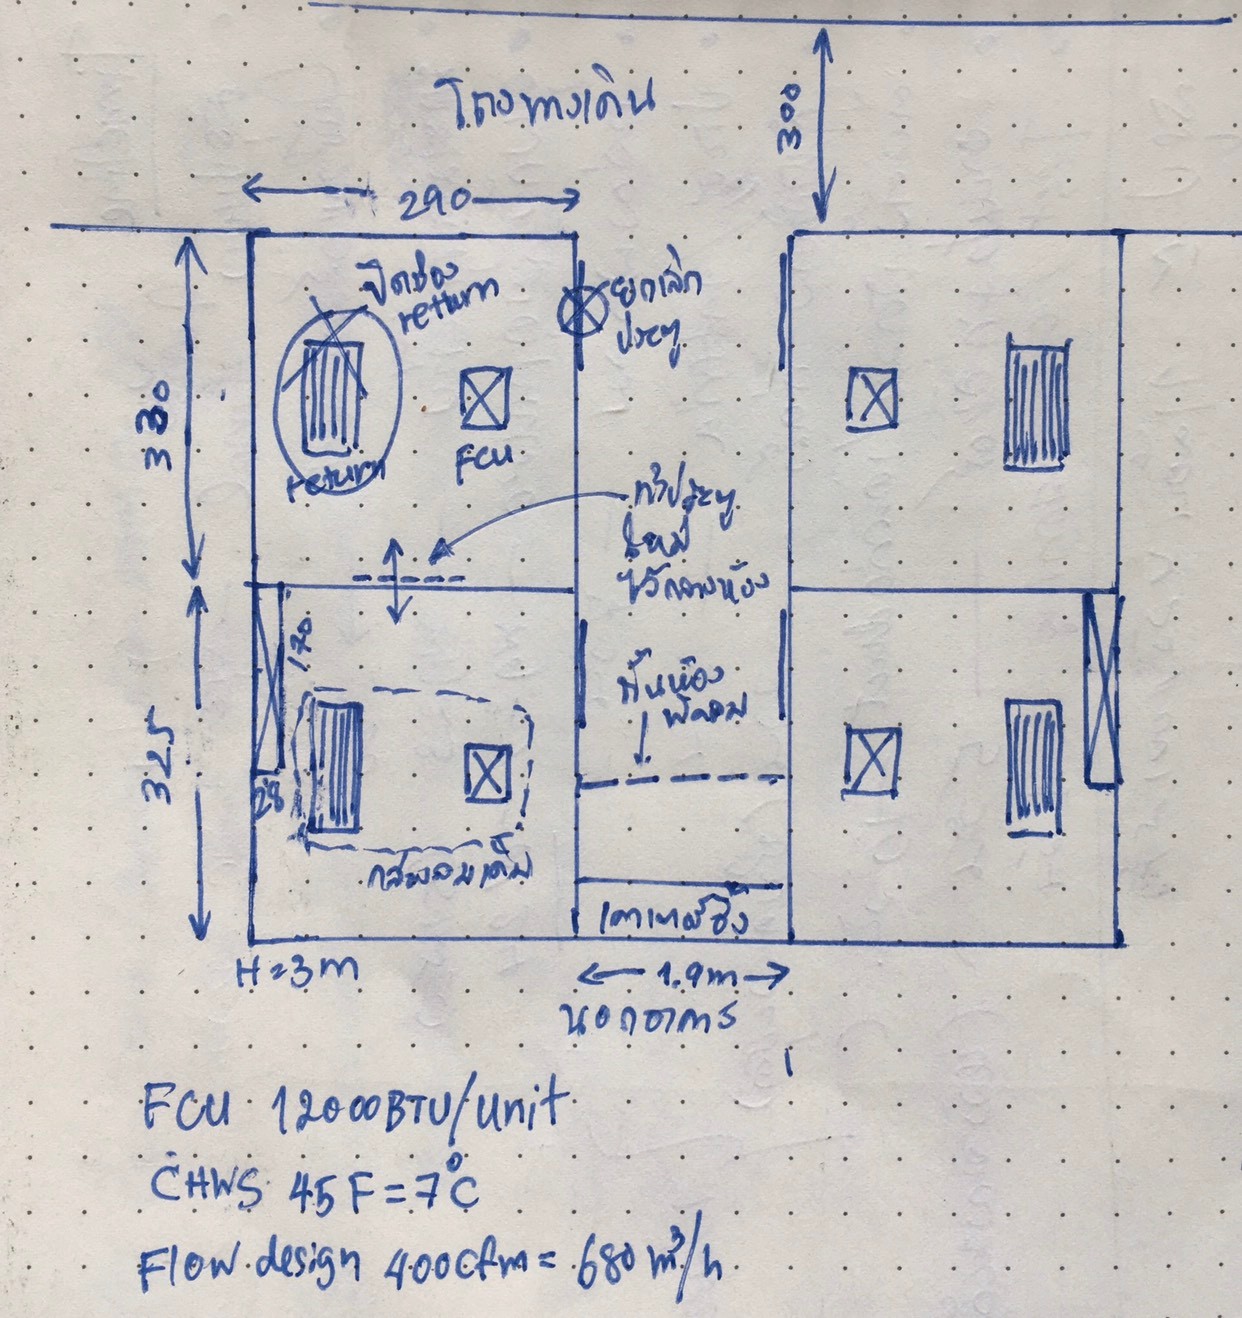 โถงทางเดิน
300
290
ปิดช่อง
return
ยกเลิก
ประตู
330
return
FCU
ทำประตู
ใหม่
ไว้กลางห้อง
170
กั้นห้อง
พัดลม
325
28
กระแสลมเดิม
เคาเตอร์ซิ้ง
H = 3 m
1.9m
นอกอาคาร
FCU 12000BTU/unit
CHWS 45F = 7°C
Flow design 400cfm = 680 m³/h